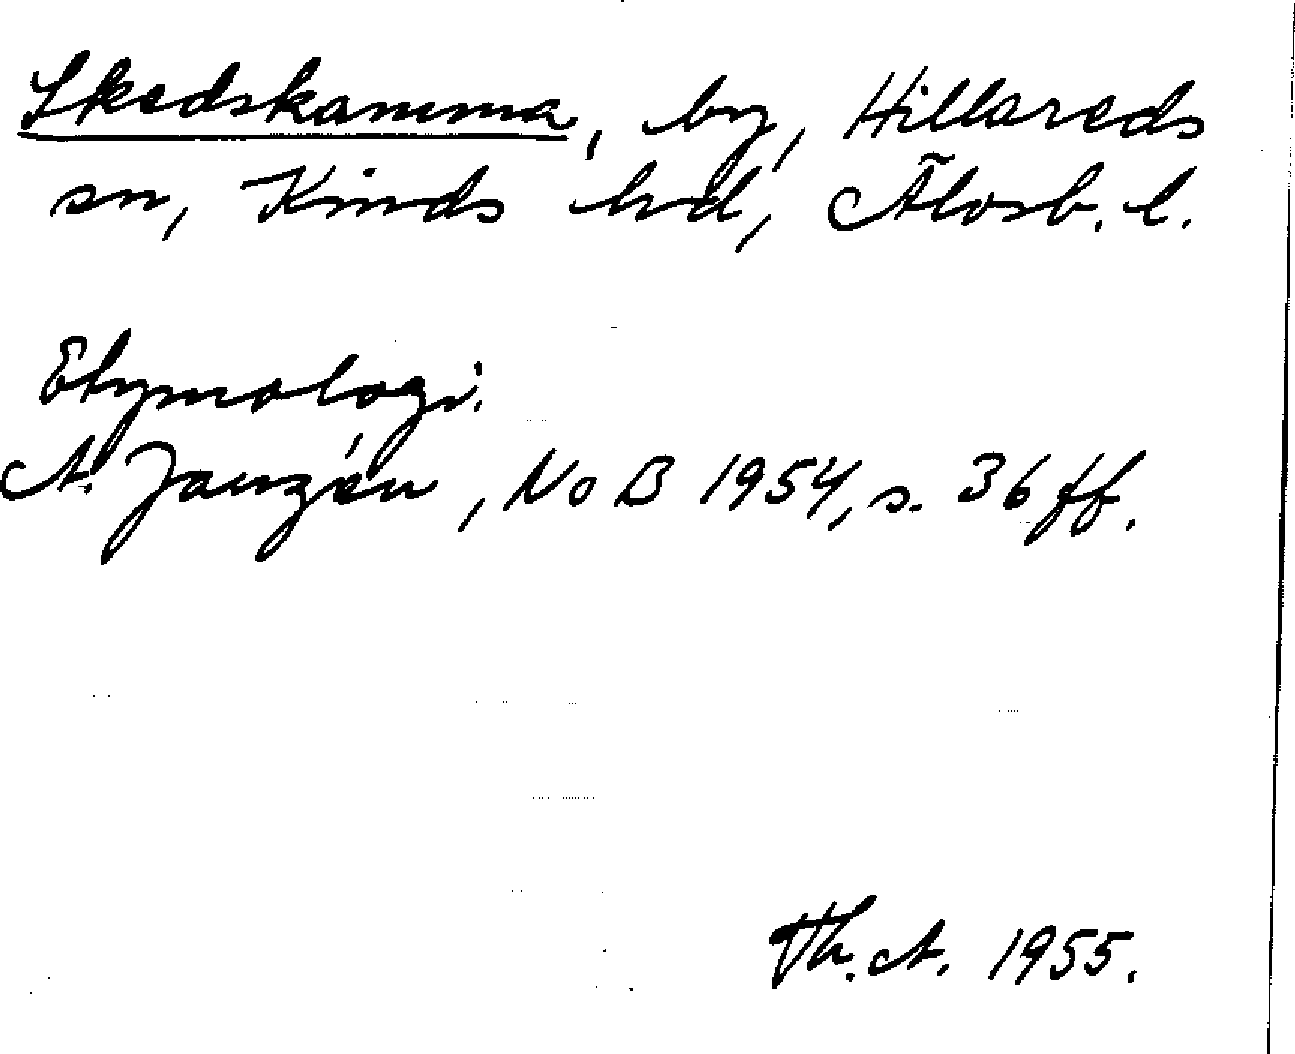 Skedskamma, by, Hillareds
sn, Kinds hd, Älvsb. l.
Etymologi.
A. Janzén, NoB 1954, s. 36 ff.
Th. A. 1955.